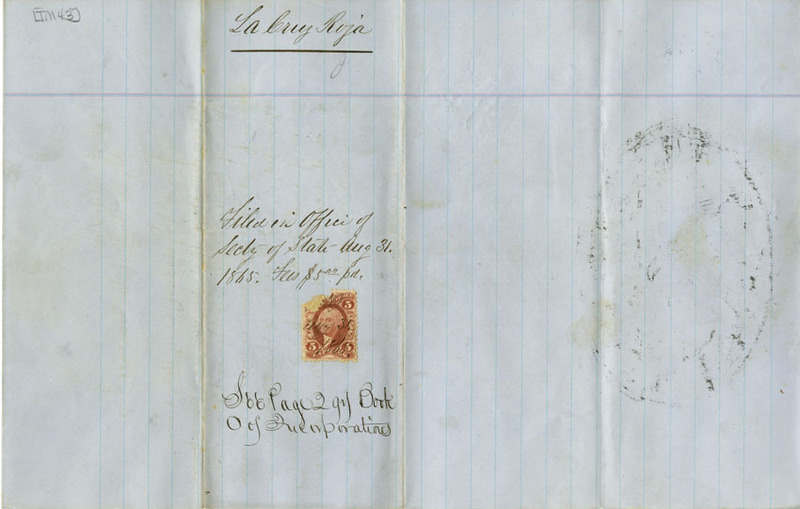 [TM43]
La Cruz Roja
Filed in Office of
Secty of State Aug 31.
1865. Fees $5.00 pd.
5
5 5
Aug 31
See Page 291 Book
O of Incorporations